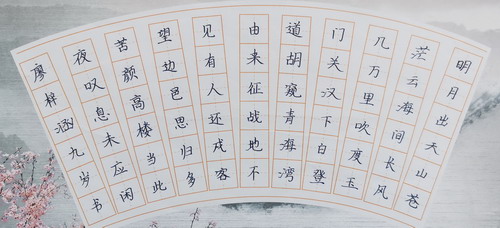 明月出天山苍
茫云海间长风
几万里吹度玉
门关汉下白登
道胡窥青海湾
由来征战地不
见有人还戏客
望边邑思归多
苦颜高楼当此
夜叹息未应闲
廖梓涵九岁书